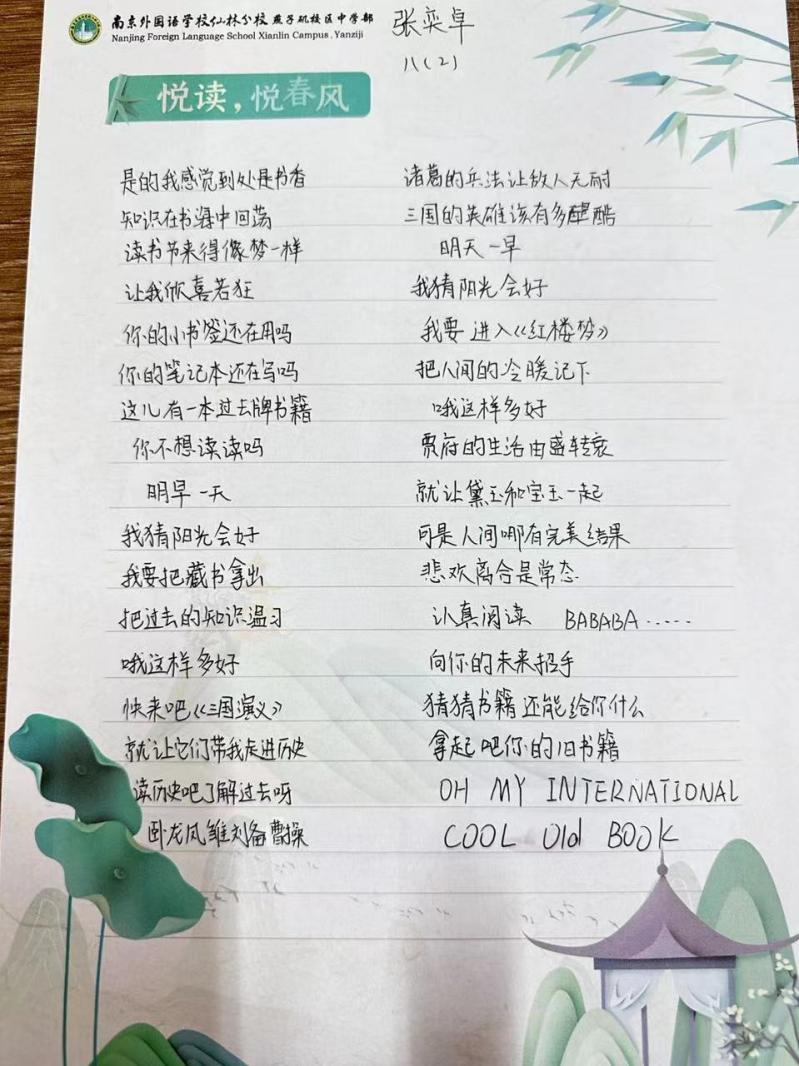 南京外国语学校仙林分校 燕子矶校区中学部
Nanjing Foreign Language School Xianlin Campus, Yanziji
张奕卓
八(2)
悦读，悦春风
是的我感觉到处是书香
知识在书海中回荡
读书节来得像梦一样
让我欣喜若狂
你的小书签还在用吗
你的笔记本还在写吗
这儿有一本过去牌书籍
你不想读读吗
明早一天
我猜阳光会好
我要把藏书拿出
把过去的知识温习
哦这样多好
快来吧《三国演义》
就让它们带我走进历史
读历史吧了解过去呀
卧龙凤雏刘备曹操
诸葛的兵法让敌人无耐
三国的英雄该有多酷
明天一早
我猜阳光会好
我要进入《红楼梦》
把人间的冷暖记下
哦这样多好
贾府的生活由盛转衰
就让黛玉和宝玉一起
可是人间哪有完美结果
悲欢离合是常态
认真阅读 BABABA……
向你的未来招手
猜猜书籍还能给你什么
拿起吧你的旧书籍
OH MY INTERNATIONAL
COOL Old BOOK